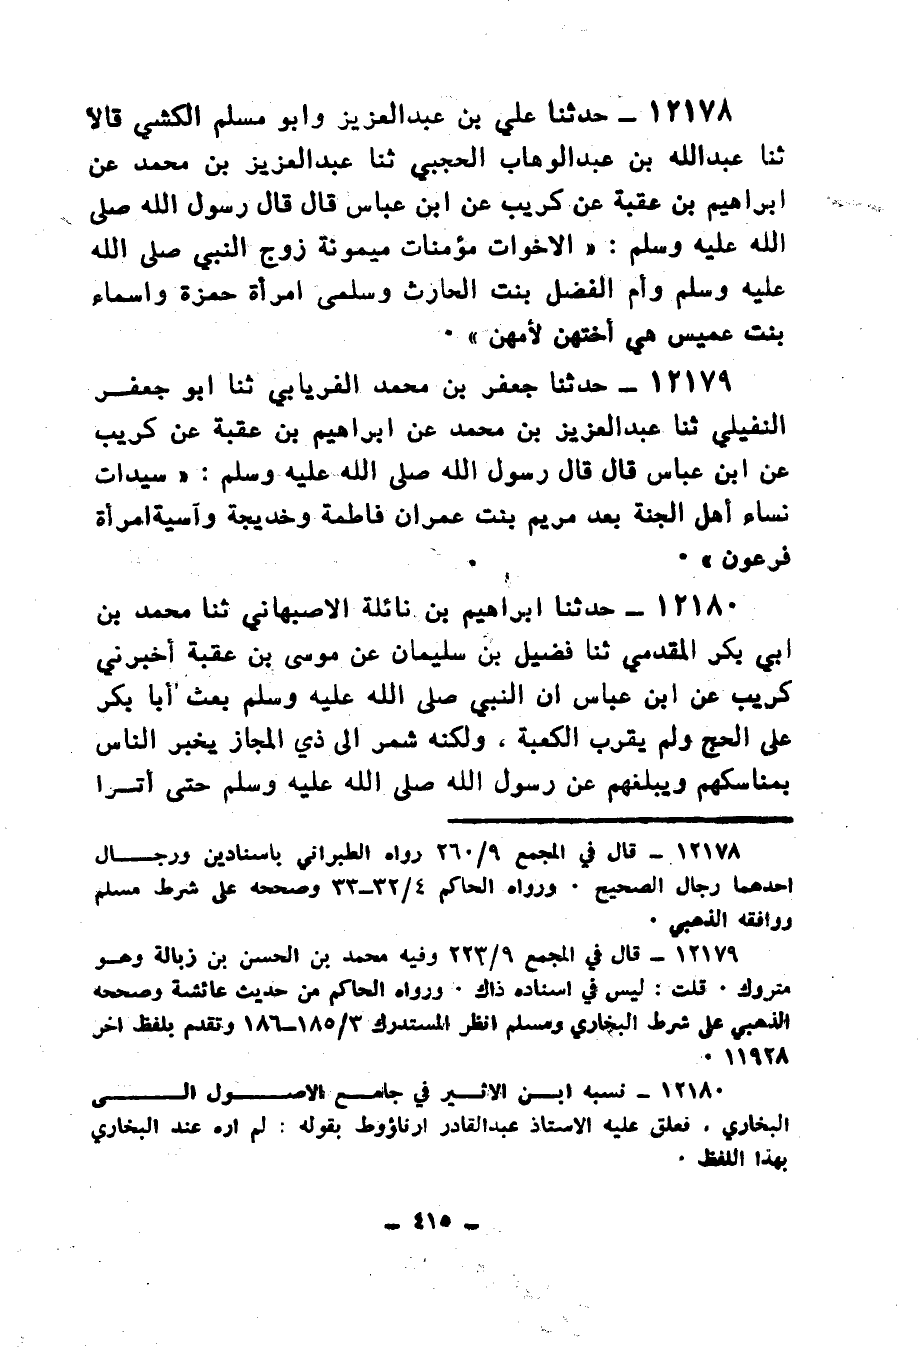 ١٢١٧٨ ـ حدثنا علي بن عبدالعزيز وابو مسلم الكشي قالا
ثنا عبدالله بن عبدالوهاب الحجبي ثنا عبدالعزيز بن محمد عن
ابراهيم بن عقبة عن كريب عن ابن عباس قال قال رسول الله صلى
الله عليه وسلم : « الاخوات مؤمنات ميمونة زوج النبي صلى الله
عليه وسلم وأم الفضل بنت الحارث وسلمى امرأة حمزة واسماء
بنت عميس هي أختهن لأمهن » ٠
١٢١٧٩ ـ حدثنا جعفر بن محمد الفريابي ثنا ابو جعفر
النفيلي ثنا عبدالعزيز بن محمد عن ابراهيم بن عقبة عن كريب
عن ابن عباس قال قال رسول الله صلى الله عليه وسلم : « سيدات
نساء أهل الجنة بعد مريم بنت عمران فاطمة وخديجة وآسية امرأة
فرعون » ٠
١٢١٨٠ ـ حدثنا ابراهيم بن نائلة الاصبهاني ثنا محمد بن
ابي بكر المقدمي ثنا فضيل بن سليمان عن موسى بن عقبة أخبرني
كريب عن ابن عباس ان النبي صلى الله عليه وسلم بعث أبا بكر
على الحج ولم يقرب الكعبة ، ولكنه شمر الى ذي المجاز يخبر الناس
بمناسكهم ويبلغهم عن رسول الله صلى الله عليه وسلم حتى أتـرا
١٢١٧٨ ـ قال في المجمع ٢٦٠/٩ رواه الطبراني باسنادين ورجـال
احدهما رجال الصحيح ٠ ورواه الحاكم ٣٢/٤ـ٣٣ وصححه على شرط مسلم
ووافقه الذهبي ٠
١٢١٧٩ ـ قال في المجمع ٢٢٣/٩ وفيه محمد بن الحسن بن زبالة وهـو
متروك ٠ قلت : ليس في اسناده ذاك ٠ ورواه الحاكم من حديث عائشة وصححه
الذهبي على شرط البخاري ومسلم انظر المستدرك ١٨٥/٣ـ١٨٦ وتقدم بلفظ اخر
١١٩٢٨ ٠
١٢١٨٠ ـ نسبه ابـن الاثـير في جامـع الاصـول الـى
البخاري ، فعلق عليه الاستاذ عبدالقادر ارناؤوط بقوله : لم اره عند البخاري
بهذا اللفظ ٠
ـ ٤١٥ ـ